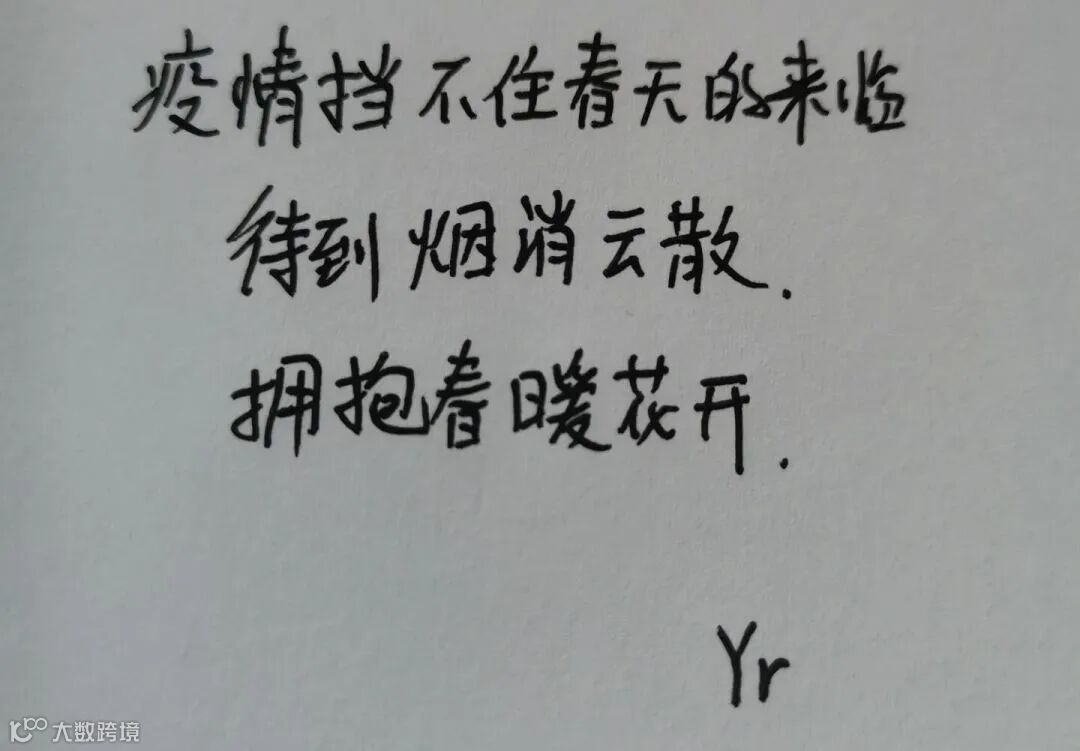 疫情挡不住春天的来临
待到烟消云散.
拥抱春暖花开.
Yr
大数跨境